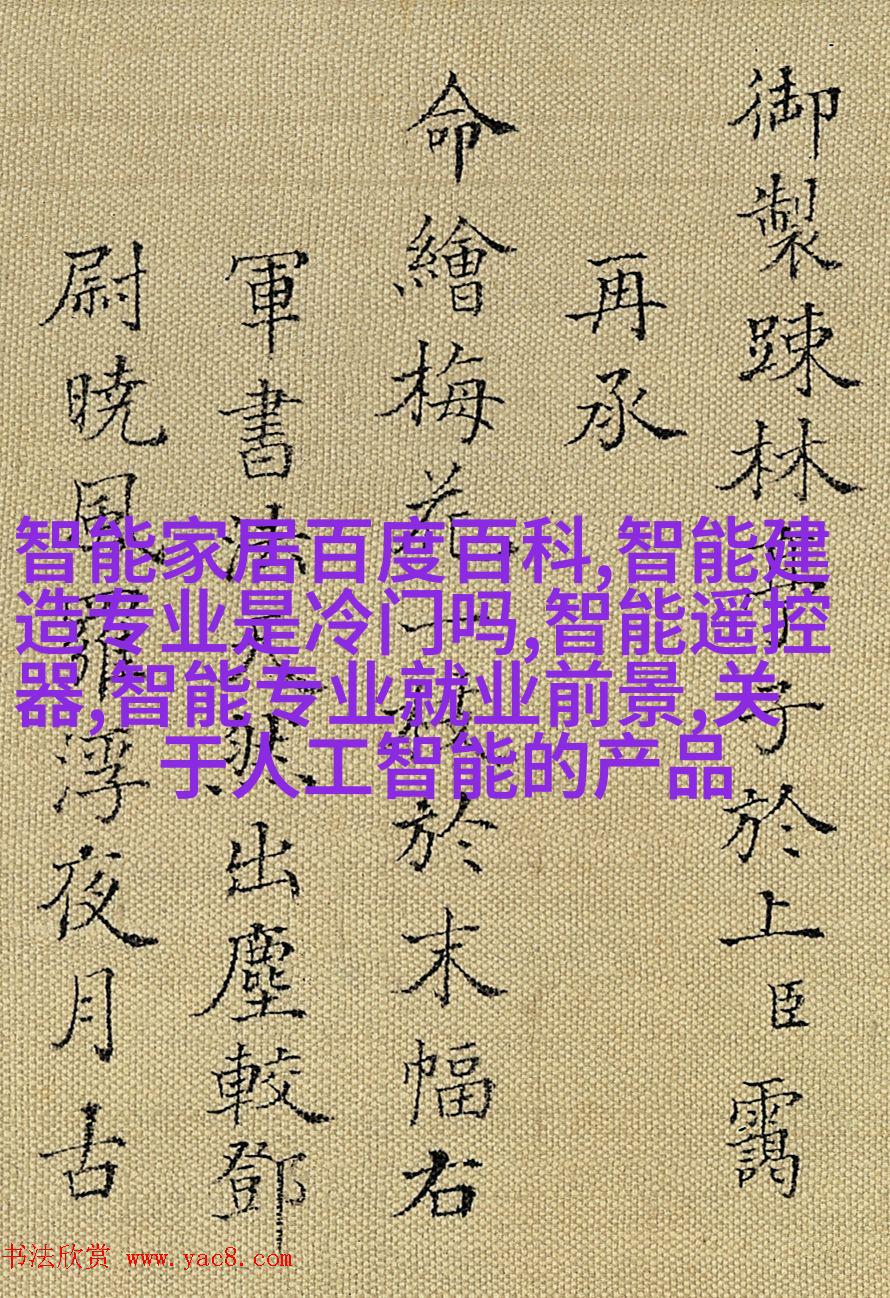 御製踈林子於上臣靄
再承
命繪梅花一枝於末幅右
軍書法天然出塵較鄧
尉曉風羅浮夜月古
智能家居百度百科,智能建
造专业是冷门吗,智能遥控
器,智能专业就业前景,关
于人工智能的产品
书法欣赏 www.yac8.com